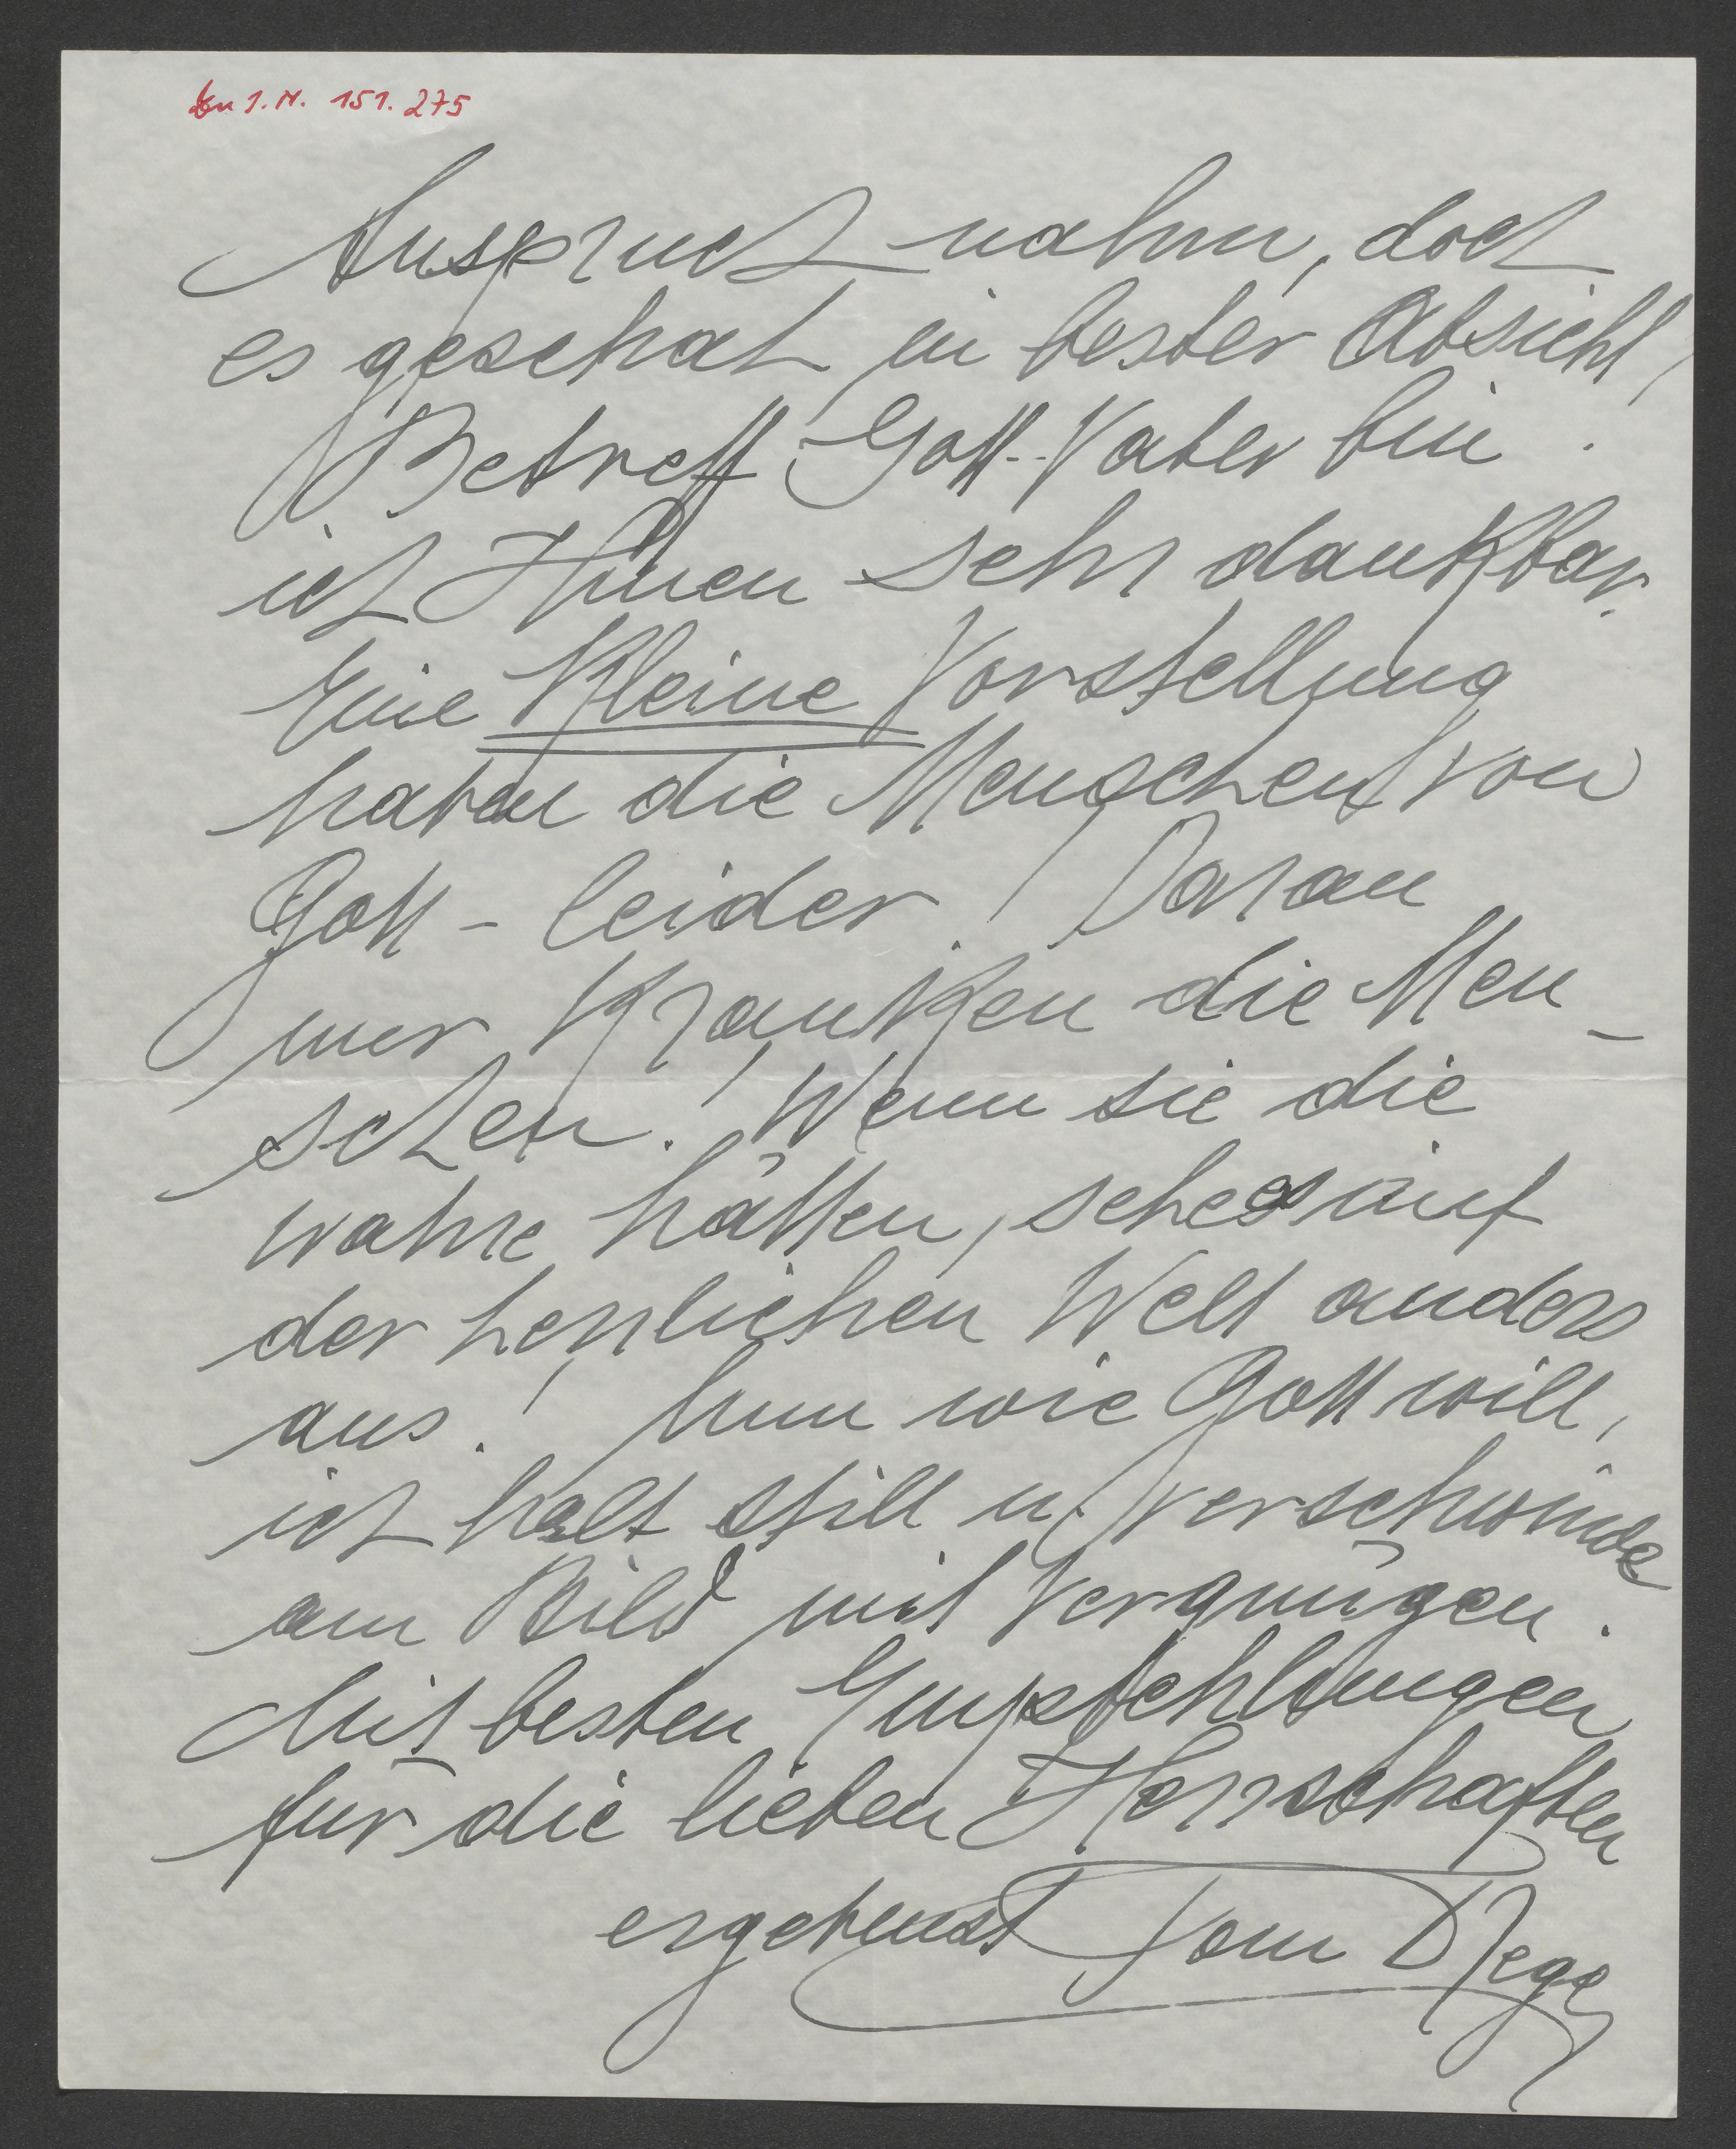 Zu I.N. 151.275
Anspruch nahm, doch
es geschah in bester Absicht,
Betreff Gott-Vater bin
ich Ihnen sehr dankbar.
Eine kleine Vorstellung
haben die Menschen von
Gott - leider! Daran
nur kranken die Men-
schen! Wenn sie die
wahre hätten, sehe es auf
der herrlichen Welt anders
aus! Nun wie Gott will,
ich halt still u. verschwinde
am Bild mit Vergnügen.
Mit besten Empfehlungen
für die lieben Herrschaften
ergebenst